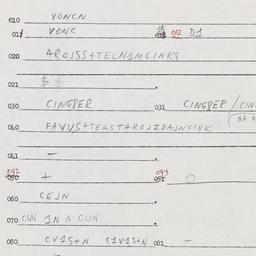 010 VONCN
011 VONC 012 D1
020 AROJSS+TELN1MCINK8
021 $
030 CINGPER 031 CINGPER / CIN
040 FAVUS+TEKSTAROJZDAJNCINK
041 -
042 050 + 043 051 O
060 CEJN
070 CUN IN A CUN
080 CV1S+N C1V1S+N 081 -